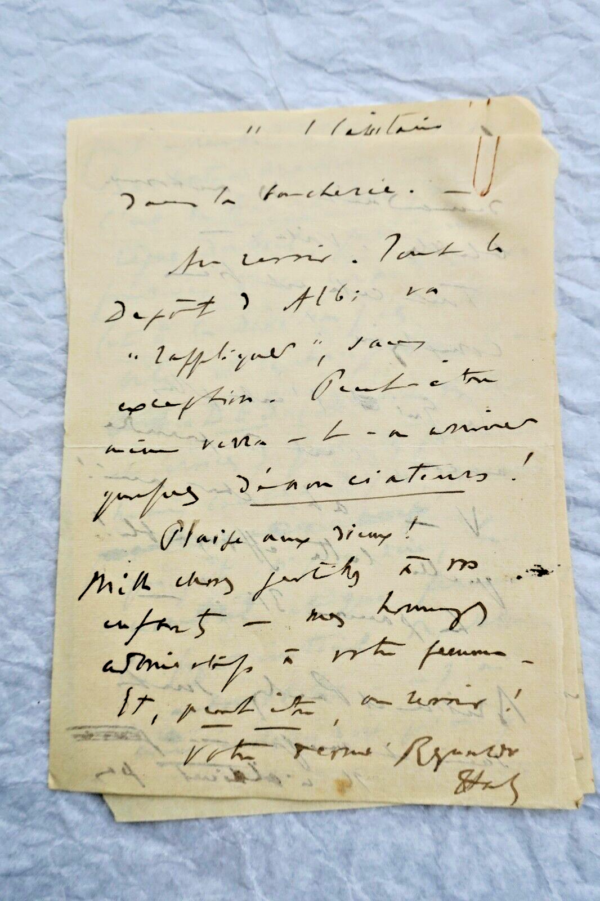 dans la boucherie. —
Au revoir. Tout le
Dépôt d'Albi va
"rappliquer", sans
exception. Peut-être
même verra-t-on arriver
quelques dénonciateurs!
Plaise aux dieux!
Mille choses gentilles à vos
enfants — mes hommages
admiratifs à votre femme —
Et, peut-être, au revoir!
Votre Reynaldo
Hahn